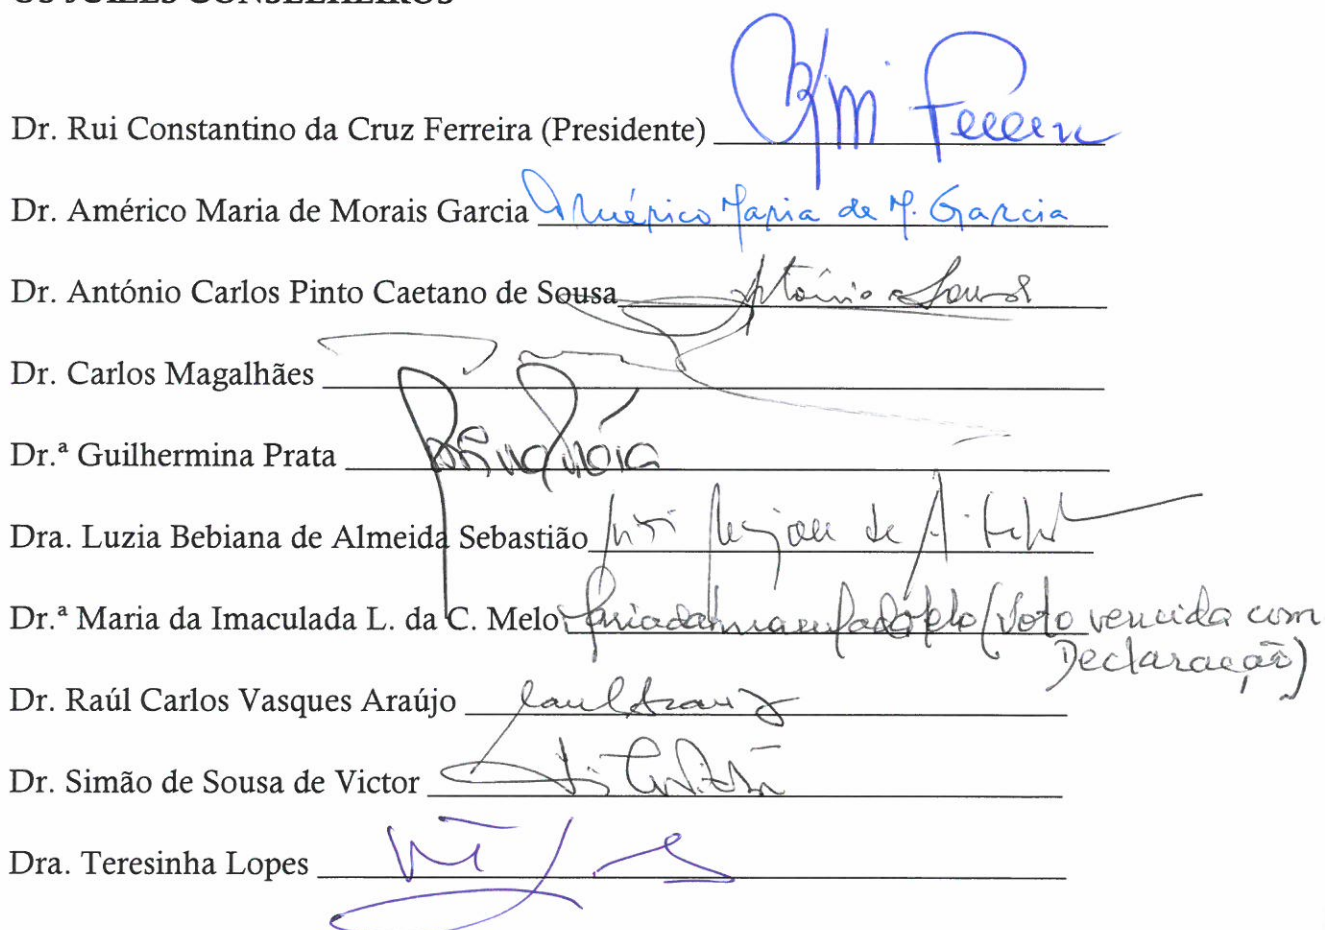 OS JUÍZES CONSELHEIROS
Dr. Rui Constantino da Cruz Ferreira (Presidente)
Dr. Américo Maria de Morais Garcia Américo Maria de M. Garcia
Dr. António Carlos Pinto Caetano de Sousa António Sousa
Dr. Carlos Magalhães
Dr.ª Guilhermina Prata
Dra. Luzia Bebiana de Almeida Sebastião
Dr.ª Maria da Imaculada L. da C. Melo (Voto vencida com
Declaração)
Dr. Raúl Carlos Vasques Araújo
Dr. Simão de Sousa de Victor
Dra. Teresinha Lopes